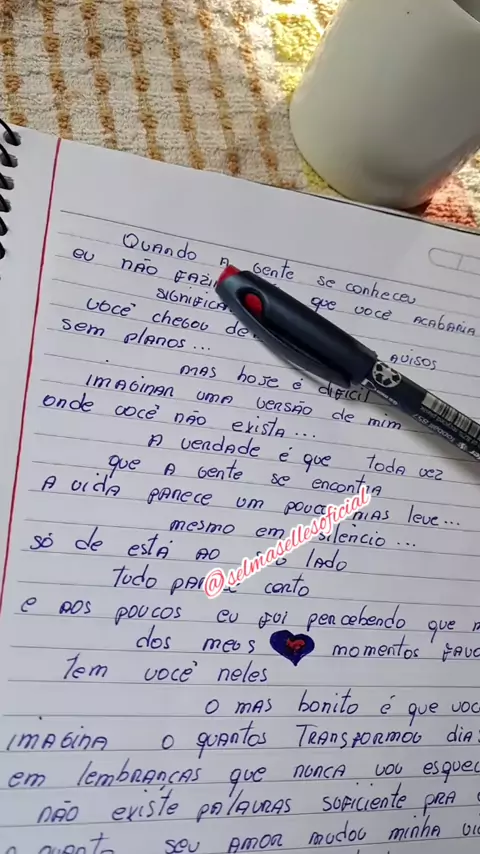 Quando a gente se conheceu
eu não que você acabaria
você chegou avisos
sem planos...
mas hoje é difícil
imaginar uma versão de mim
onde você não exista...
A verdade é que toda vez
que a gente se encontra
A vida parece um pouco mais leve...
mesmo em silencio...
só de está ao lado
Tudo certo
e aos poucos eu fui percebendo que
dos meus momentos
Tem você neles
o mas bonito é que
imagina o quantos transformou
em lembranças que nunca vou
não existe palavras suficiente pra
o quanto seu amor mudou minha
@selmasellesoficial